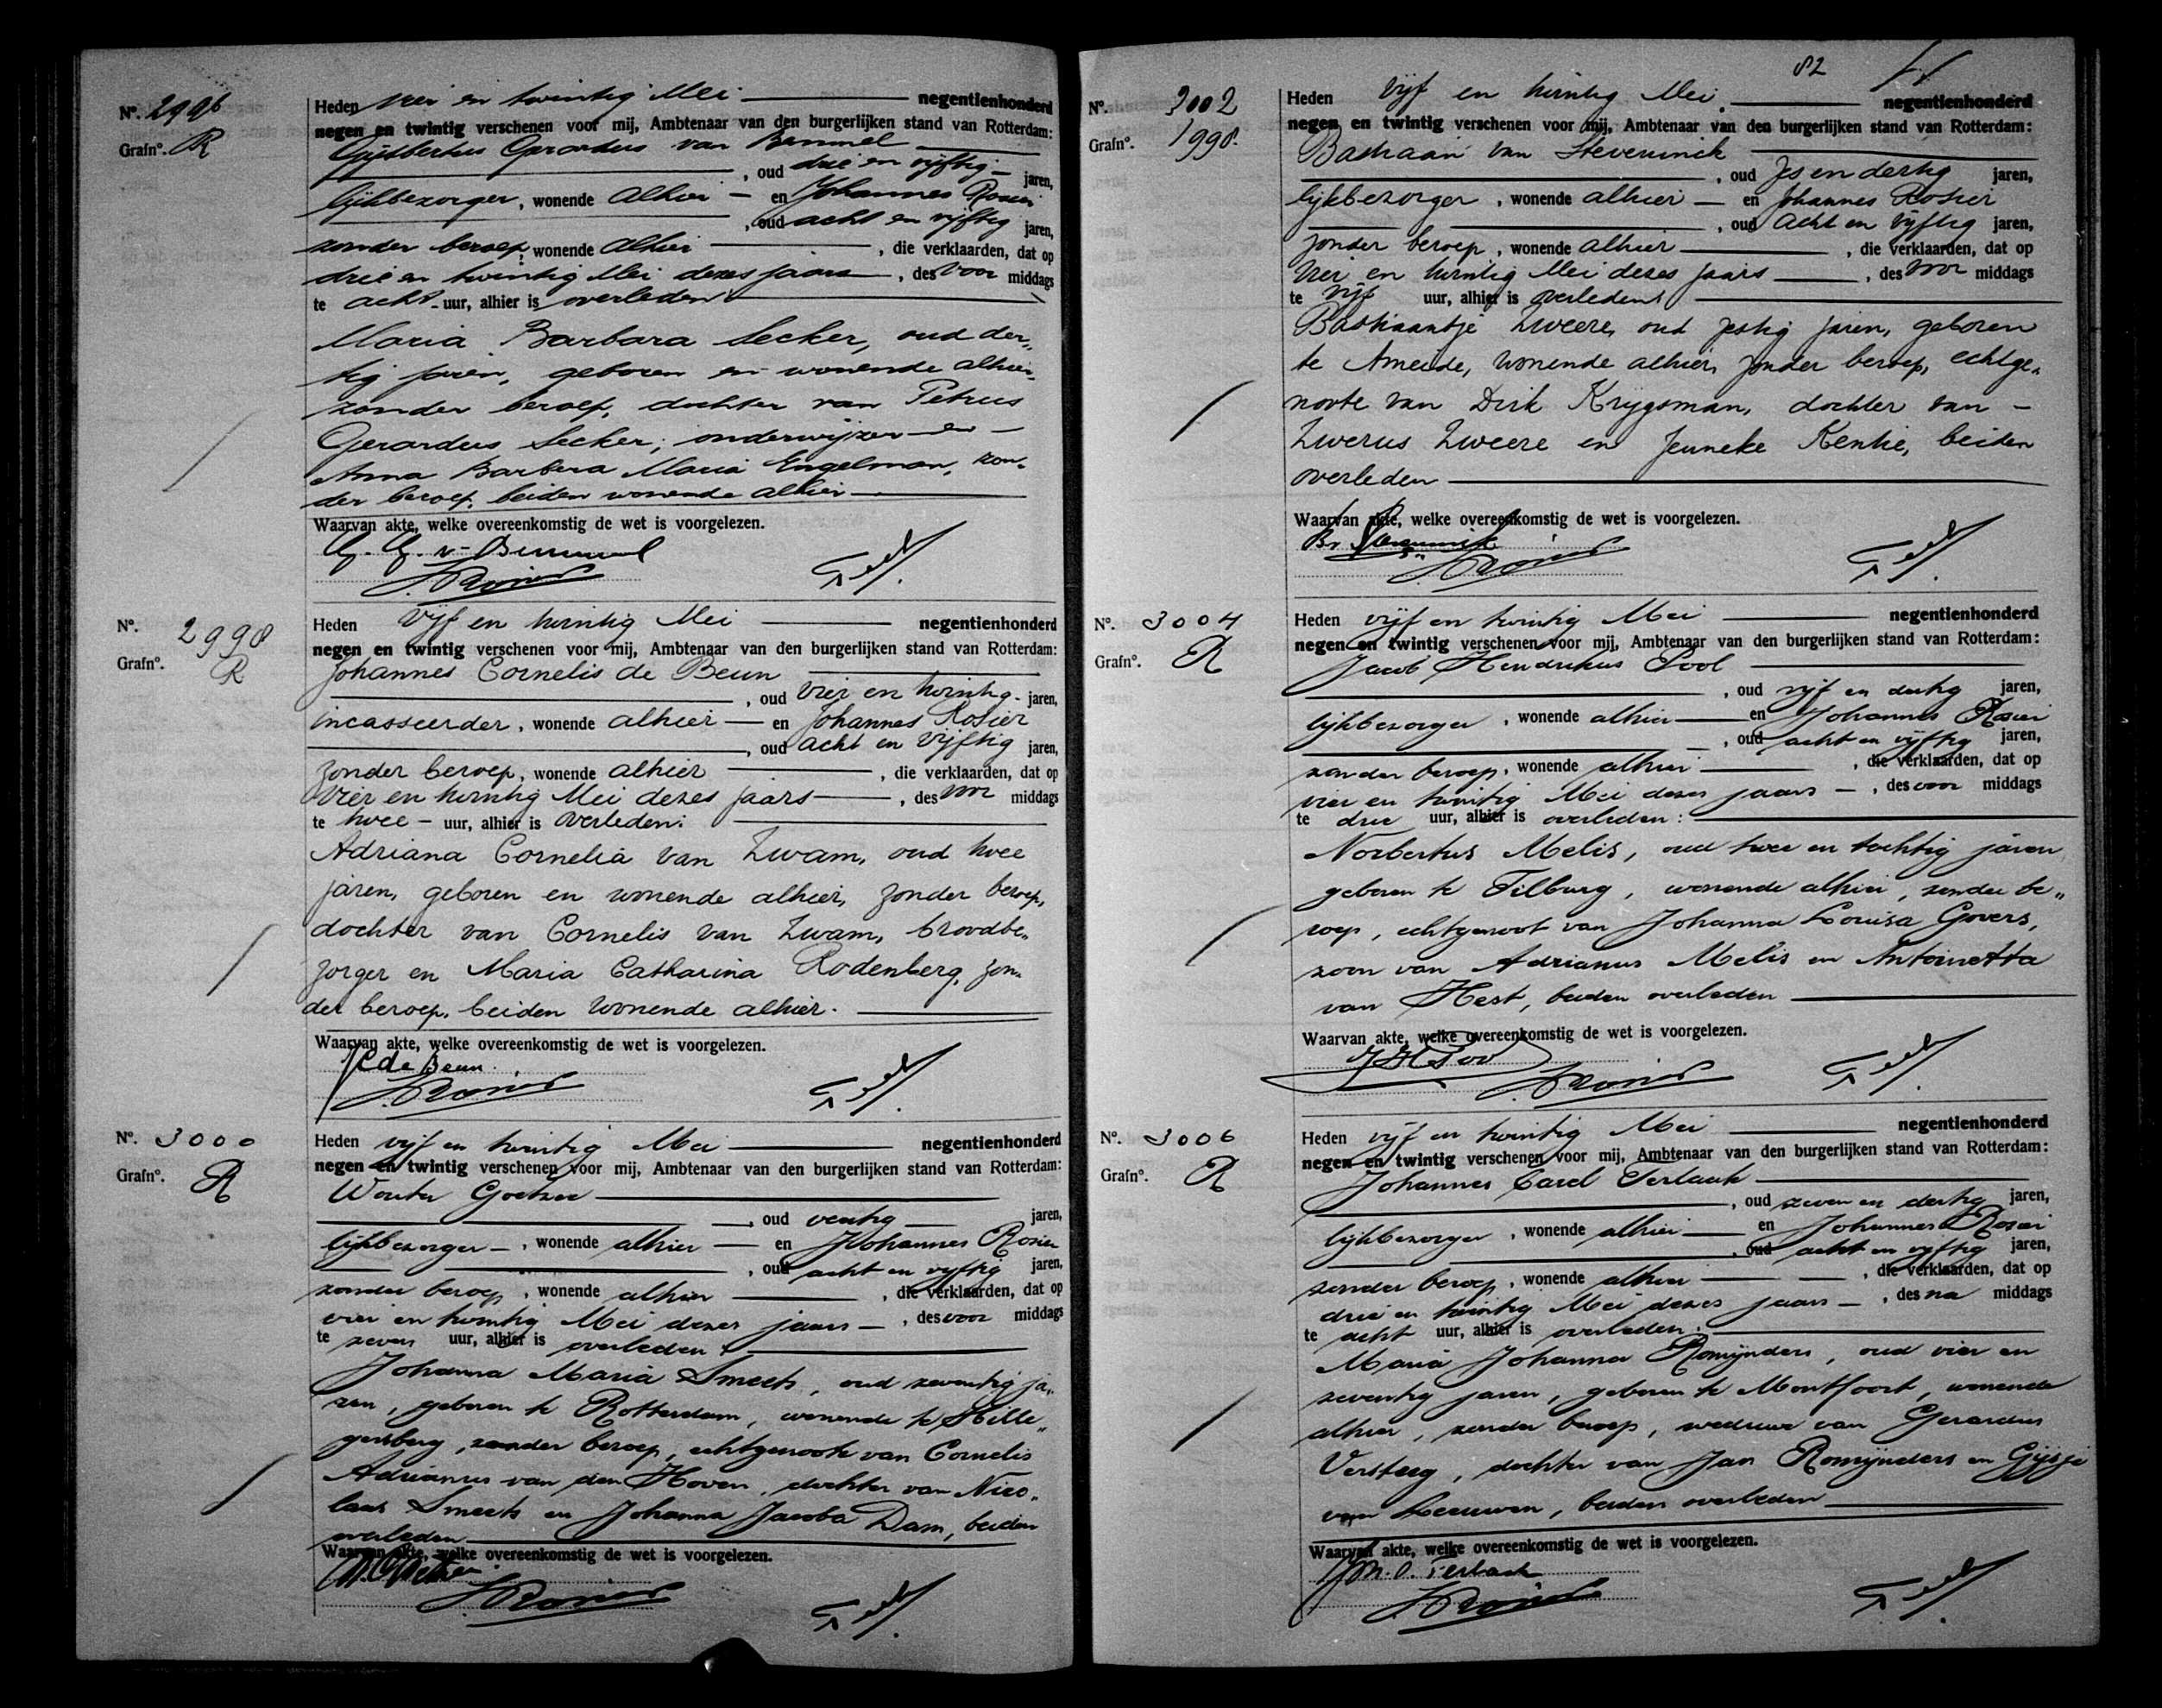 Nº. 2996
Grafnº. R
Heden vier en twintig Mei negentienhonderd
negen en twintig verschenen voor mij, Ambtenaar van den burgerlijken stand van Rotterdam:
Gijsbertus Gerardus van Bemmel
, oud drie en vijftig jaren,
lijkbezorger, wonende alhier en Johannes Rosier
, oud acht en vijftig jaren,
zonder beroep, wonende alhier , die verklaarden, dat op
drie en twintig Mei dezes jaars , des voor middags
te acht uur, alhier is overleden:
Maria Barbara Secker, oud der„
tig jaren, geboren en wonende alhier,
zonder beroep, dochter van Petrus
Gerardus Secker, onderwijzer en
Anna Barbera Maria Engelman, zon„
der beroep, beiden wonende alhier
Waarvan akte, welke overeenkomstig de wet is voorgelezen.
G. G. v. Bemmel
J Rosier
Nº. 2998
Grafnº. R
Heden vijf en twintig Mei negentienhonderd
negen en twintig verschenen voor mij, Ambtenaar van den burgerlijken stand van Rotterdam:
Johannes Cornelis de Beun
, oud vier en twintig jaren,
incasseerder, wonende alhier en Johannes Rosier
, oud acht en vijftig jaren,
zonder beroep, wonende alhier , die verklaarden, dat op
vier en twintig Mei dezes jaars , des voor middags
te twee uur, alhier is overleden:
Adriana Cornelia van Zwam, oud twee
jaren, geboren en wonende alhier, zonder beroep,
dochter van Cornelis van Zwam, broodbe„
zorger en Maria Catharina Rodenberg, zon„
der beroep, beiden wonende alhier.
Waarvan akte, welke overeenkomstig de wet is voorgelezen.
JC de Beun.
J Rosier
Nº. 3000
Grafnº. R
Heden vijf en twintig Mei negentienhonderd
negen en twintig verschenen voor mij, Ambtenaar van den burgerlijken stand van Rotterdam:
Wouter
, oud jaren,
lijkbezorger, wonende alhier en Johannes Rosier
, oud acht en vijftig jaren,
zonder beroep, wonende alhier , die verklaarden, dat op
vier en twintig Mei dezes jaars , des voor middags
te zeven uur, alhier is overleden:
Johanna Maria Smeets, oud zeventig ja„
ren, geboren te Rotterdam, wonende te Hille„
gersberg, zonder beroep, echtgenoote van Cornelis
Adrianus van den Hoven, dochter van Nico„
laas Smeets en Johanna Jacoba Dam, beiden
overleden
Waarvan akte, welke overeenkomstig de wet is voorgelezen.
J Rosier
82
Nº. 3002
Grafnº. 1998.
Heden vijf en twintig Mei. negentienhonderd
negen en twintig verschenen voor mij, Ambtenaar van den burgerlijken stand van Rotterdam:
Bastiaan van Steveninck
, oud zes en dertig jaren,
lijkbezorger, wonende alhier en Johannes Rosier
, oud acht en vijftig jaren,
zonder beroep, wonende alhier , die verklaarden, dat op
vier en twintig Mei dezes jaars , des voor middags
te vijf uur, alhier is overleden:
Bastiaantje Zweere, oud zestig jaren, geboren
te Ameide, wonende alhier, zonder beroep, echtge„
noote van Dirk Krijgsman, dochter van
Zwerus Zweere en Jenneke Kentie, beiden
overleden
Waarvan akte, welke overeenkomstig de wet is voorgelezen.
J Rosier
Nº. 3004
Grafnº. R
Heden vijf en twintig Mei negentienhonderd
negen en twintig verschenen voor mij, Ambtenaar van den burgerlijken stand van Rotterdam:
Jacob Hendrikus Pool
, oud vijf en dertig jaren,
lijkbezorger, wonende alhier en Johannes Rosier
, oud acht en vijftig jaren,
zonder beroep, wonende alhier , die verklaarden, dat op
vier en twintig Mei dezes jaars , des voor middags
te drie uur, alhier is overleden:
Norbertus Melis, oud twee en tachtig jaren,
geboren te Tilburg, wonende alhier, zonder be„
roep, echtgenoot van Johanna Louisa Govers,
zoon van Adrianus Melis en Antoinetta
van Hest, beiden overleden
Waarvan akte, welke overeenkomstig de wet is voorgelezen.
J H Pool
J Rosier
Nº. 3006
Grafnº. R
Heden vijf en twintig Mei negentienhonderd
negen en twintig verschenen voor mij, Ambtenaar van den burgerlijken stand van Rotterdam:
Johannes Carel Terlaak
, oud zeven en dertig jaren,
lijkbezorger, wonende alhier en Johannes Rosier
, oud acht en vijftig jaren,
zonder beroep, wonende alhier , die verklaarden, dat op
drie en twintig Mei dezes jaars , des na middags
te acht uur, alhier is overleden:
Maria Johanna Romijnders, oud vier en
zeventig jaren, geboren te Montfoort, wonende
alhier, zonder beroep, weduwe van Gerardus
Versteeg, dochter van Jan Romijnders en Gijsje
van Leeuwen, beiden overleden
Waarvan akte, welke overeenkomstig de wet is voorgelezen.
Terlaak
J Rosier